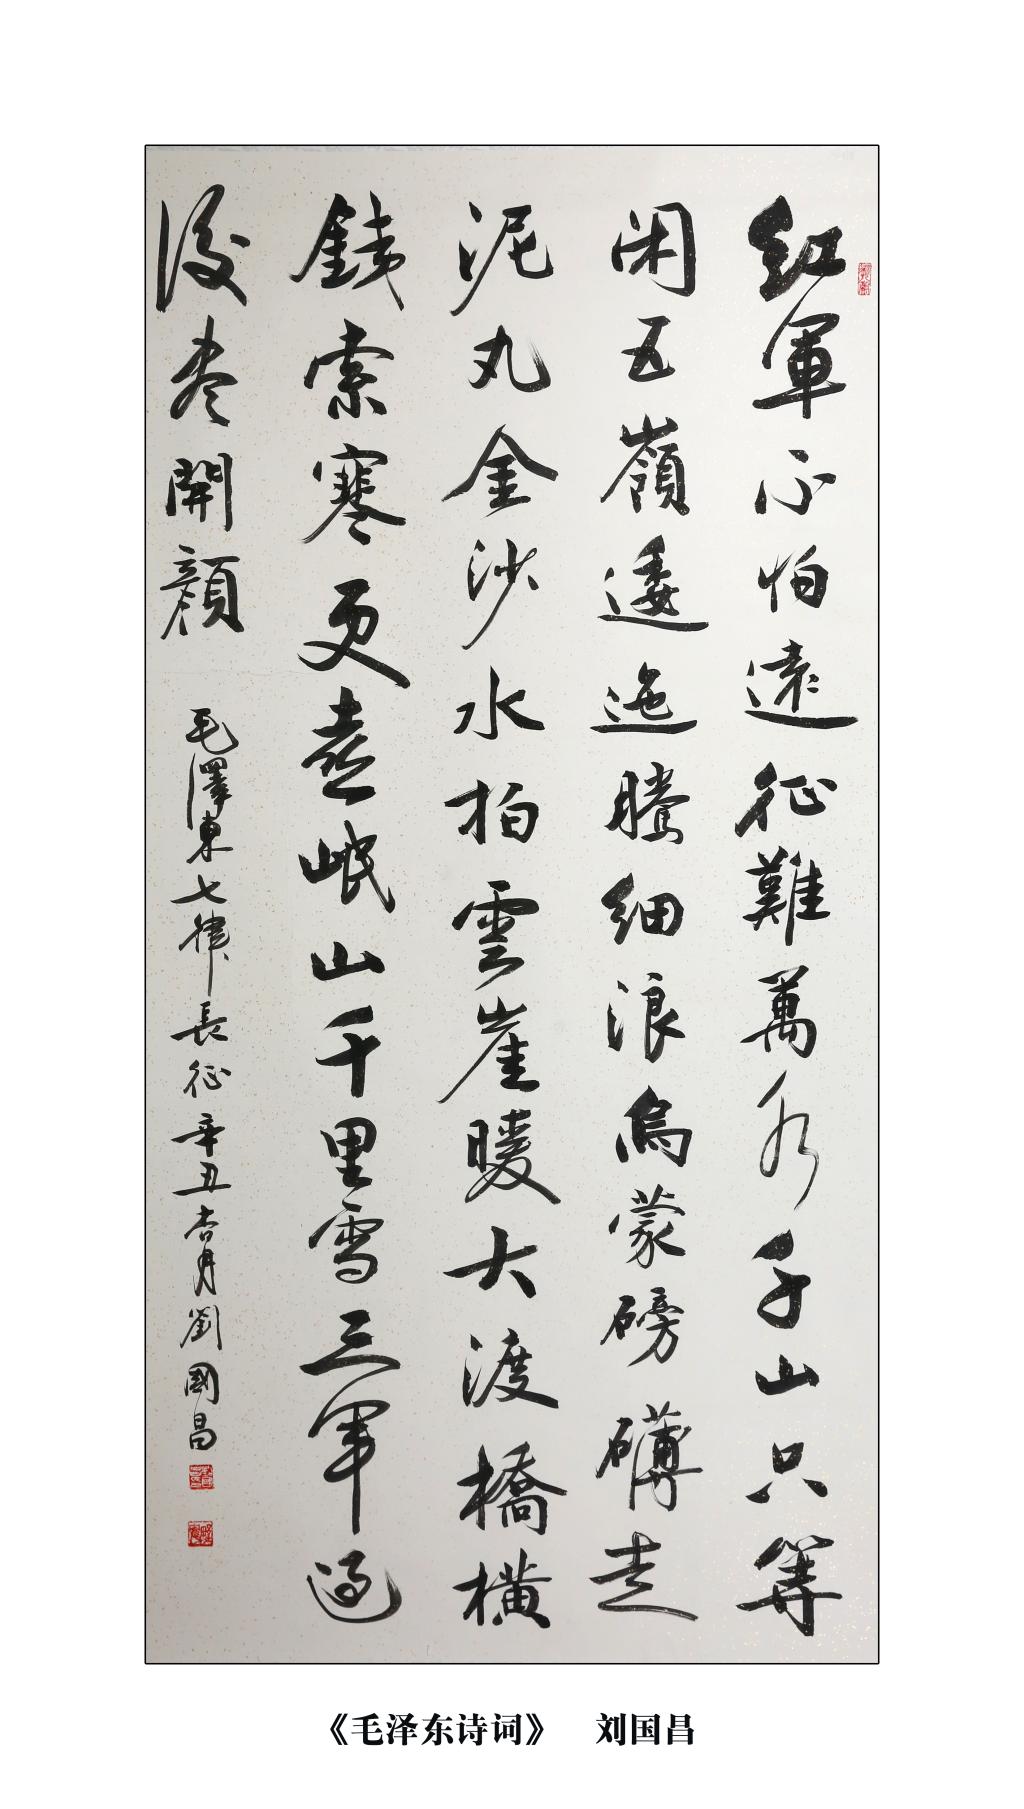 紅軍不怕遠征難萬水千山只等
闲五嶺逶迤騰細浪烏蒙磅礴走
泥丸金沙水拍雲崖暖大渡橋横
銕索寒更喜岷山千里雪三軍過
後尽開顔
毛澤東七律長征辛丑杏月劉國昌
《毛泽东诗词》 刘国昌